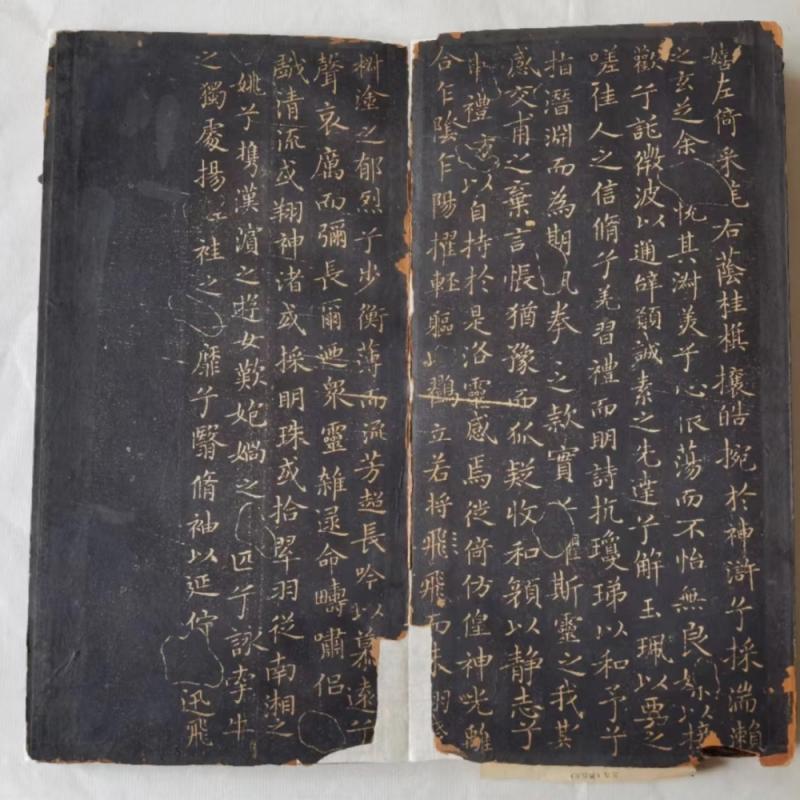 嬉左倚采旄右蔭桂旗攘皓捥於神滸兮採湍瀨
之玄芝余恱其淑美兮心振蕩而不怡無良以接
歡兮託微波以通辭願誠素之先達兮解玉珮以要之
嗟佳人之信脩兮羌習禮而明詩抗瓊珶以和予兮
指潛淵而為期執拳之款實兮懼斯靈之我其
感交甫之棄言悵猶豫而狐疑收和顏以靜志兮
申禮以自持於是洛靈感焉徙倚仿偟神光離
合乍陰乍陽擢輕軀以鶴立若將飛飛而未翔
椒塗之郁烈兮步衡薄而流芳超長吟以慕遠兮
聲哀厲而彌長爾迺衆靈雜遝命疇嘯侶
戲清流或翔神渚或採明珠或拾翠羽從南湘之
姚兮攜漢濱之遊女歎媧之匹兮詠牽牛
之獨處揚輕袿之靡兮翳脩袖以延佇迅飛